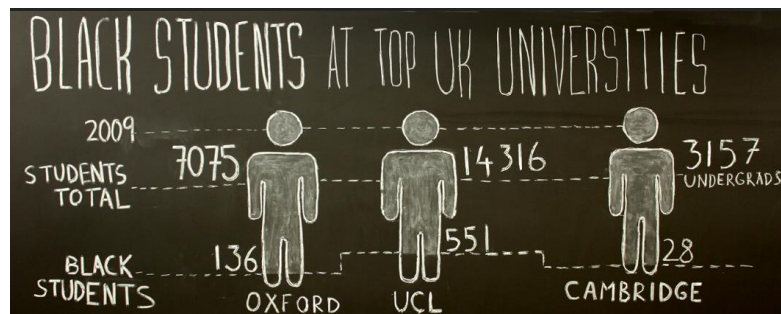 BLACK STUDENTS AT TOP UK UNIVERSITIES
2009
STUDENTS TOTAL
7075
14316
3157
UNDERGRADS
BLACK STUDENTS
136
551
28
OXFORD
UCL
CAMBRIDGE